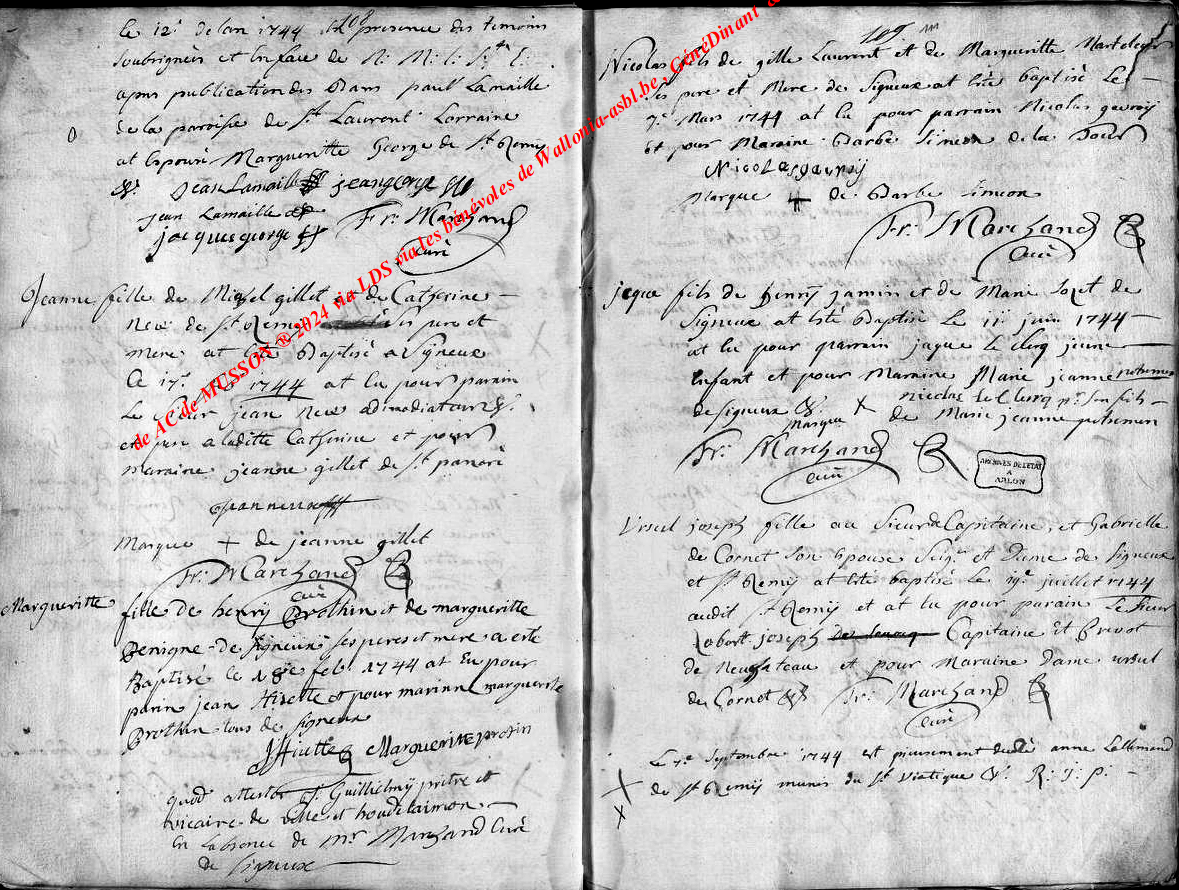 108
le 12e de lan 1744 en presence des temoins
soubsignes et en face de N: M: L: Ste E:
apres publication des bans paul Lamaille
de la paroise de St Laurent Lorraine
at Espousé Margueritte George de St Remij
&c. Jean Lamaille jean george
jean Lamaille Fr: Marchand
jacque george curé
Jeanne fille de Michel gillet et de Catherine
Neve de St Remij ses pere et
mere at Eté Baptisé a Signeux
Le 17e 1744 at Eu pour parain
Le Sieur jean Neve admodiateur &c.
pere a laditte Catherine et pour
maraine jeanne gillet de St panoré
Marque + de jeanne gillet
Fr: Marchand
curé
Margueritte fille de henry Brothin et de margueritte
Benigne de Signeux ses peres et mere a esté
Baptisé le 18e feb: 1744 at Eu pour
parin jean Hiette et pour marinne marguerite
Brothin tous de signeux
JHiutte Marguerite protin
quod attestor J: Guilhelmy pretre et
vicaire de ville et houdelaimon
En Labsence de Mr Marchand Curé
de Signeux
109
Nicolas fils de gille Laurent et de Margueritte Marteleur
Ses pere et Mere de Signeux at Eté baptisé Le
7e Mars 1744 at Eu pour parrain Nicolas gavroij
Et pour Maraine Barbe Simeon de la
Nicolas gavroij
Marque + de Barbe simeon
Fr: Marchand
Curé
jaque fils de henrij jamin et de Marie Loret de
Signeux at Eté Baptisé Le 11e juin 1744
at Eu pour parrain jaque le clerq jeune
Enfant et pour Maraine Marie jeanne putremen
de signeux &c. x nicolas le Clercq pr. son fils
Marque de Marie jeanne putremen
Fr: Marchand
curé
ARCHIVES DE L'ETAT
A
ARLON
Ursul joseph fille au Sieur de Capitaine, et Gabrielle
de Cornet son Epouse Seigr et Dame de Signeux
et St Remij at Eté baptisé le 19e juillet 1744
audit St Remij et at Eu pour parain Le Sieur
Robert joseph Capitaine et Prevot
de Neufchateau et pour Maraine Dame ursul
de Cornet &c. Fr: Marchand
Curé
Le 7e Septembre 1744 est pieusement decedé anne Lallemand
de St Remij munis du St Viatique &c. R. J. P.
de AC de MUSSON ® 2024 via LDS via les bénévoles de Wallonia-asbl.be , GénéDinant